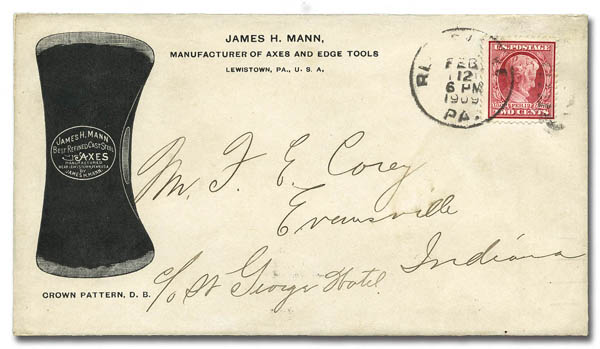 JAMES H. MANN,
MANUFACTURER OF AXES AND EDGE TOOLS
LEWISTOWN, PA., U. S. A.
FEB
12
6 PM
1909
PA.
U.S. POSTAGE
TWO CENTS
JAMES H. MANN
BEST REFINED CAST STEEL
AXES
MANUFACTURED
BY
JAMES H. MANN
Mr. F. E. Corey
Evansville
Indiana
c/o St George Hotel
CROWN PATTERN, D. B.